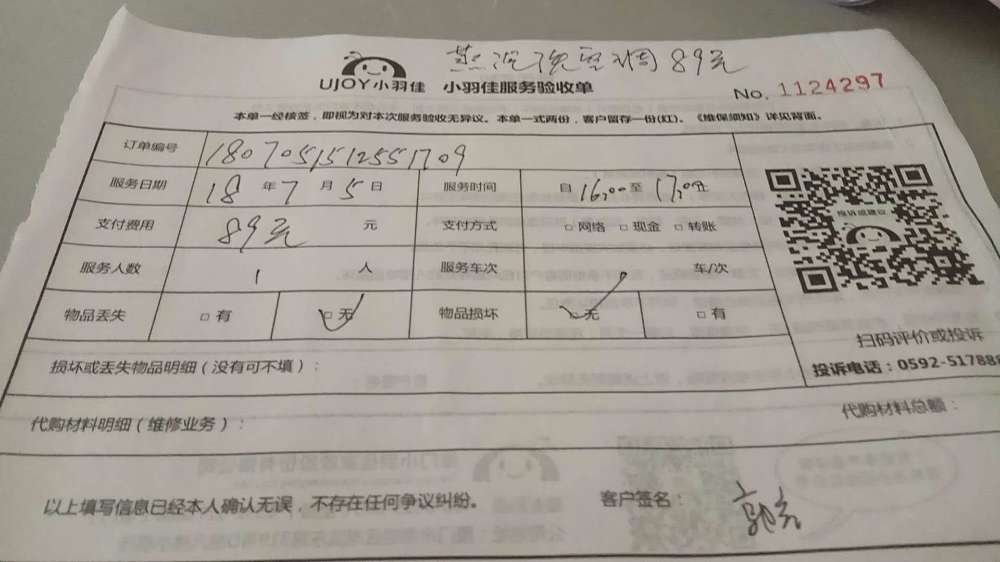 蒸汽洗空调89元
UJOY小羽佳 小羽佳服务验收单 No. 1124297
本单一经核签，即视为对本次服务验收无异议。本单一式两份，客户留存一份(红)。《维保须知》详见背面。
订单编号 1807051512551709
服务日期 18 年 7 月 5 日 服务时间 自 16:00 至 17:00 止
投诉或建议
支付费用 89元 元 支付方式 □ 网络 □ 现金 □ 转账
服务人数 1 人 服务车次 车/次
物品丢失 □ 有 □ 无 物品损坏 □ 无 □ 有
扫码评价或投诉
损坏或丢失物品明细（没有可不填）： 投诉电话：0592-517888
代购材料明细（维修业务）： 代购材料总额：
以上填写信息已经本人确认无误，不存在任何争议纠纷。 客户签名：